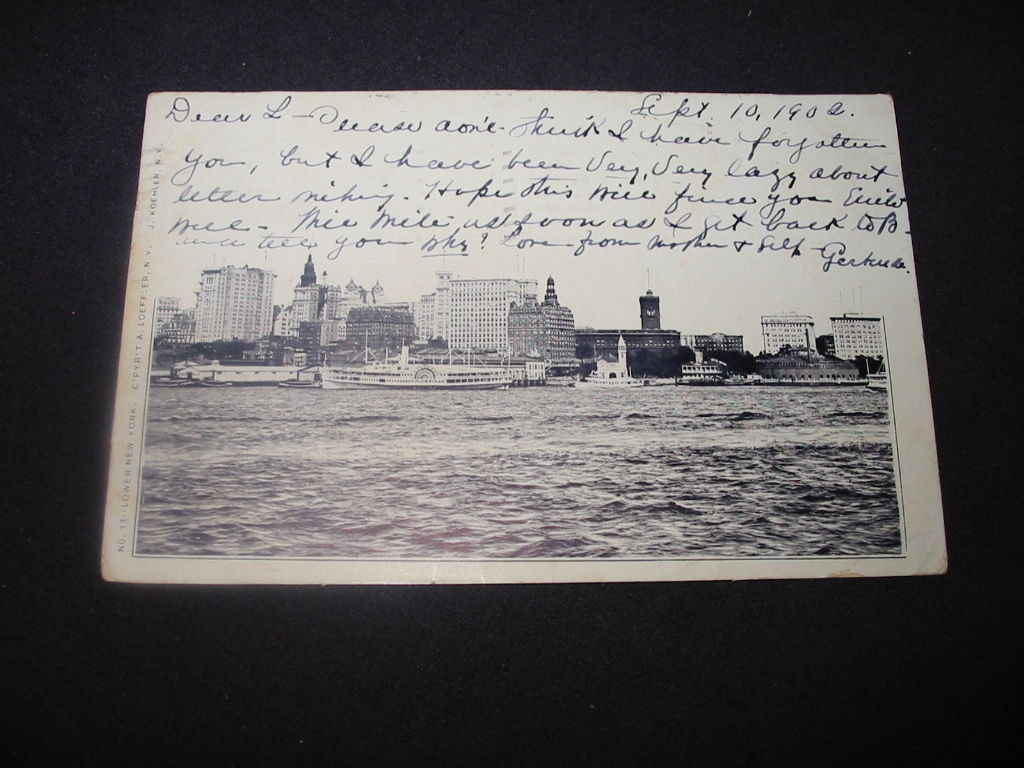 Sept. 10, 1902.
Dear L - Please don't think I have forgotten
you, but I have been Very, Very lazy about
letter writing. Hope this will find you quite
well - Will write as soon as I get back to B.
and tell you why? Love from mother & self - Gertrude.
No. 13. LOWER NEW YORK. C'PYR'T A. LOEFFLER, N.Y. J. KOEHLER, N.Y.